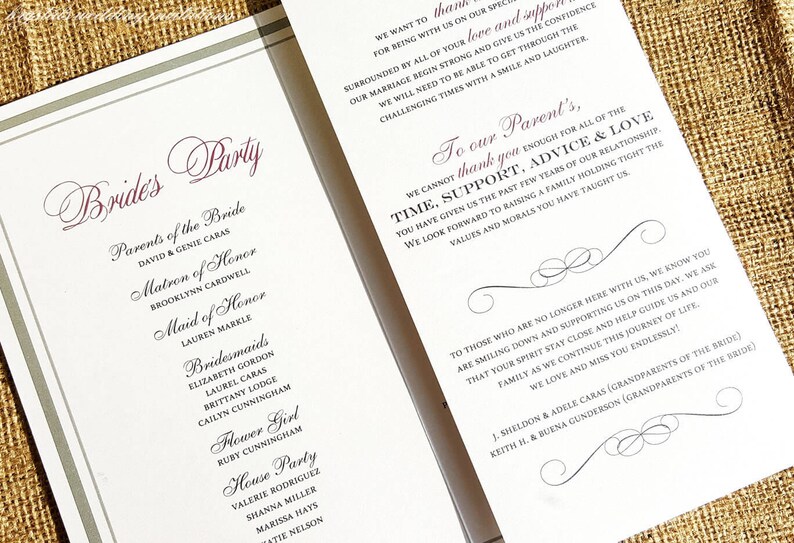 wedding invitations
Bride's Party
Parents of the Bride
DAVID & GENIE CARAS
Matron of Honor
BROOKLYNN CARDWELL
Maid of Honor
LAUREN MARKLE
Bridesmaids
ELIZABETH GORDON
LAUREL CARAS
BRITTANY LODGE
CAILYN CUNNINGHAM
Flower Girl
RUBY CUNNINGHAM
House Party
VALERIE RODRIGUEZ
SHANNA MILLER
MARISSA HAYS
KATIE NELSON
WE WANT TO thank
FOR BEING WITH US ON OUR SPECIAL
SURROUNDED BY ALL OF YOUR love and support
OUR MARRIAGE BEGIN STRONG AND GIVE US THE CONFIDENCE
WE WILL NEED TO BE ABLE TO GET THROUGH THE
CHALLENGING TIMES WITH A SMILE AND LAUGHTER.
To our Parent's,
WE CANNOT thank you ENOUGH FOR ALL OF THE
TIME, SUPPORT, ADVICE & LOVE
YOU HAVE GIVEN US THE PAST FEW YEARS OF OUR RELATIONSHIP.
WE LOOK FORWARD TO RAISING A FAMILY HOLDING TIGHT THE
VALUES AND MORALS YOU HAVE TAUGHT US.
TO THOSE WHO ARE NO LONGER HERE WITH US, WE KNOW YOU
ARE SMILING DOWN AND SUPPORTING US ON THIS DAY. WE ASK
THAT YOUR SPIRIT STAY CLOSE AND HELP GUIDE US AND OUR
FAMILY AS WE CONTINUE THIS JOURNEY OF LIFE.
WE LOVE AND MISS YOU ENDLESSLY!
J. SHELDON & ADELE CARAS (GRANDPARENTS OF THE BRIDE)
KEITH H. & BUENA GUNDERSON (GRANDPARENTS OF THE BRIDE)